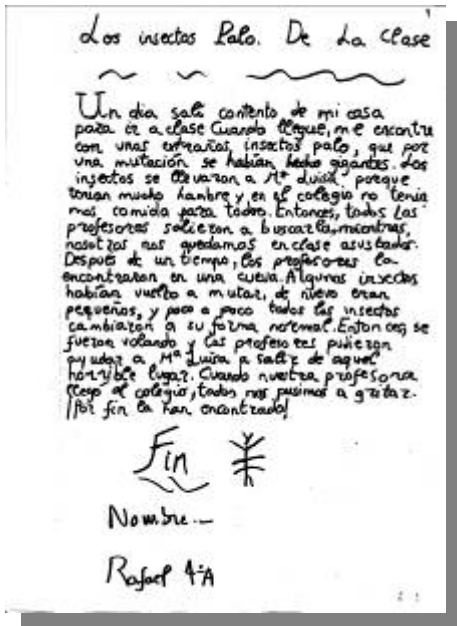 Los insectos Palo. De La Clase
Un dia sali contento de mi casa
para ir a clase Cuando llegue, me encontre
con unos extraños insectos palo, que por
una mutación se habían hecho gigantes. Los
insectos se llevaron a Mª Luisa porque
tenian mucho hambre y en el colegio no tenia
mos comida para todos. Entonces, todos los
profesores salieron a buscarla, mientras,
nosotros nos quedamos en clase asustados.
Después de un tiempo, los profesores la
encontraron en una cueva. Algunos insectos
habían vuelto a mutar, de nuevo eran
pequeños, y poco a poco todos los insectos
cambiaron a su forma normal. Entonces, se
fueron volando y los profesores pudieron
ayudar a Mª Luisa a salir de aquel
horrible lugar. Cuando nuestra profesora
llego al colegio, todos nos pusimos a gritar.
¡Por fin la han encontrado!
Fin
Nombre.—
Rafael 4ºA